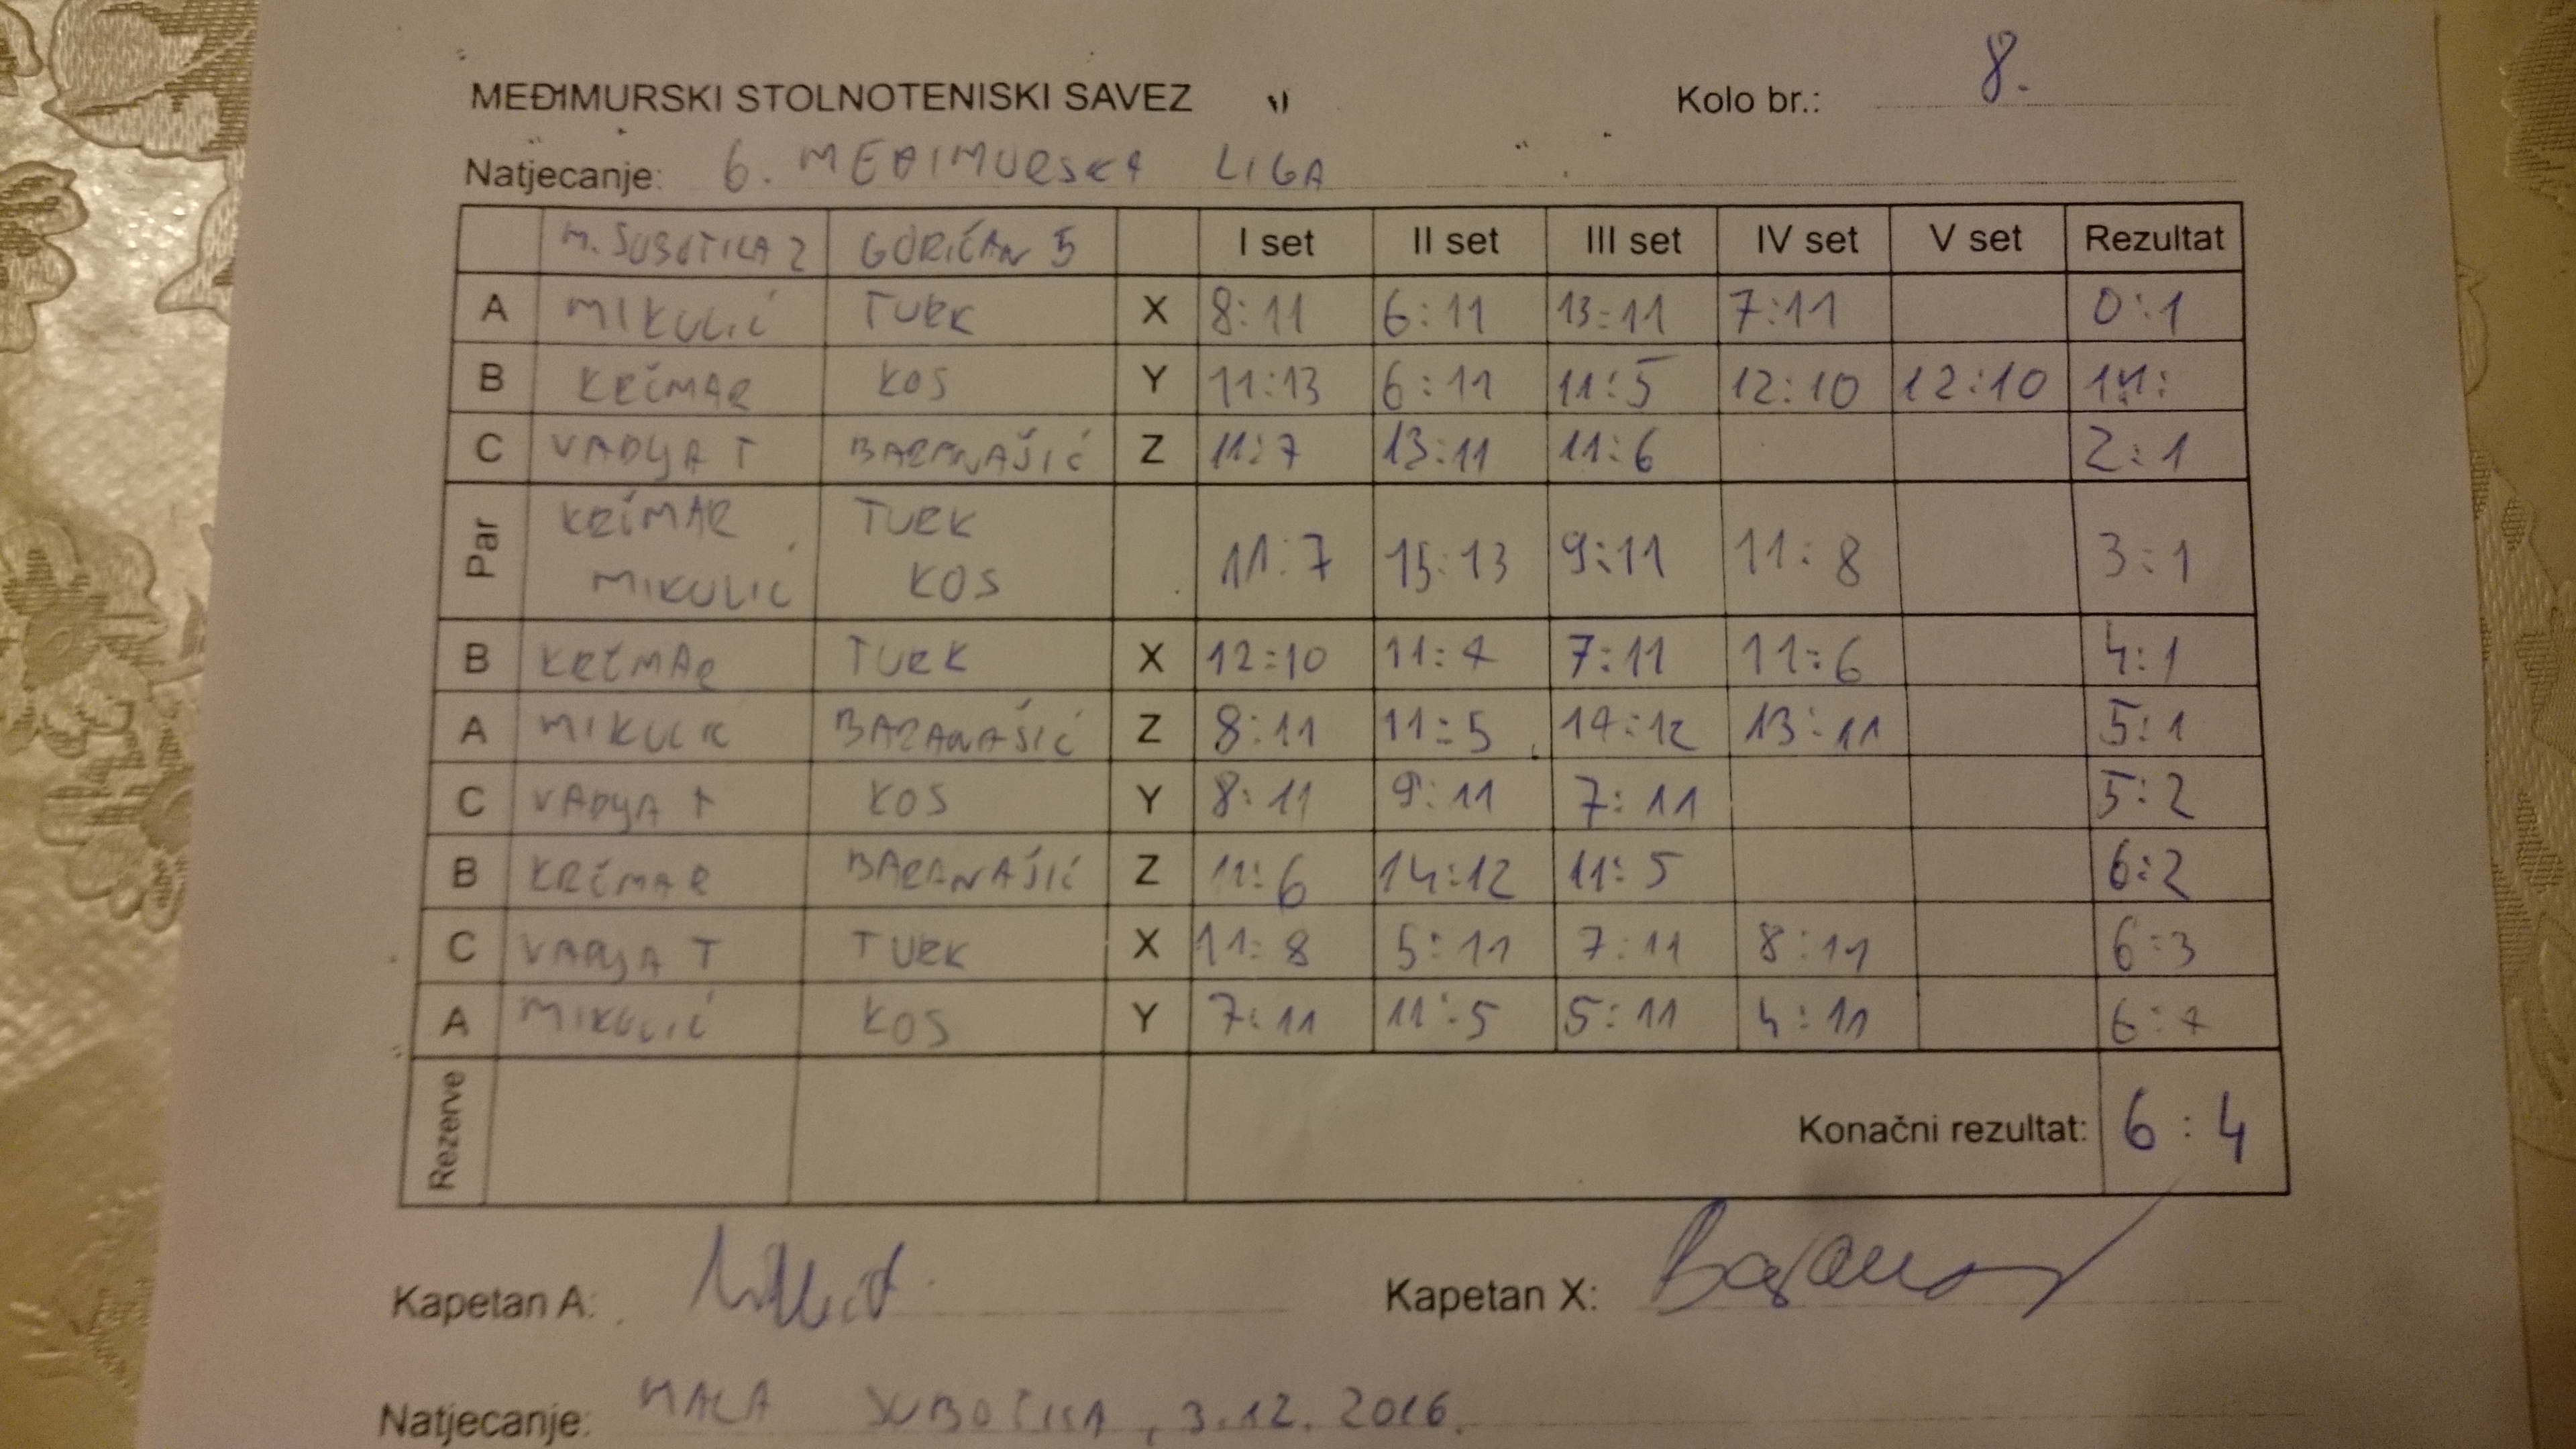 MEĐIMURSKI STOLNOTENISKI SAVEZ Kolo br.: 8.
Natjecanje: 6. MEĐIMURSKA LIGA
M. SUBOTICA 2 GORIČAN 5 I set II set III set IV set V set Rezultat
A MIKULIĆ TURK X 8:11 6:11 13:11 7:11 0:1
B KRČMAR KOS Y 11:13 6:11 11:5 12:10 12:10
C VADLJA T BARANAŠIĆ Z 11:7 13:11 11:6 2:1
Par KRČMAR TURK
MIKULIĆ KOS 11:7 15:13 9:11 11:8 3:1
B KRČMAR TURK X 12:10 11:4 7:11 11:6 4:1
A MIKULIĆ BARANAŠIĆ Z 8:11 11:5 14:12 13:11 5:1
C VADLJA T KOS Y 8:11 9:11 7:11 5:2
B KRČMAR BARANAŠIĆ Z 11:6 14:12 11:5 6:2
C VADLJA T TURK X 11:8 5:11 7:11 8:11 6:3
A MIKULIĆ KOS Y 7:11 11:5 5:11 4:11 6:4
Rezerve Konačni rezultat: 6:4
Kapetan A: Kapetan X:
Natjecanje: MALA SUBOTICA, 3.12.2016.